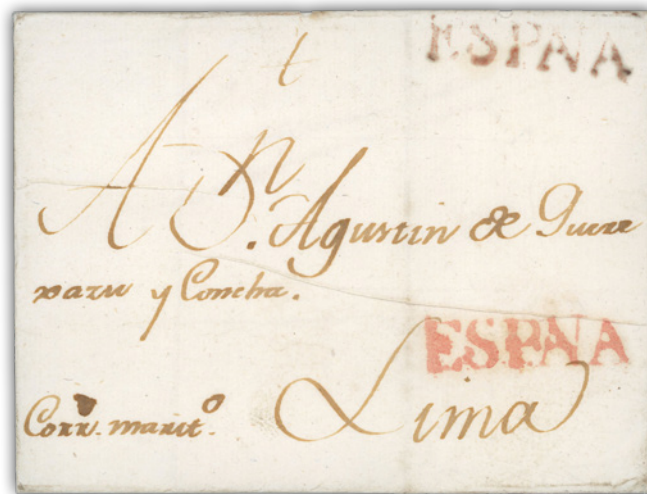 ESPAÑA
A Dn. Agustin de Quere
xazu y Concha.
ESPAÑA
Corro. marito. Lima